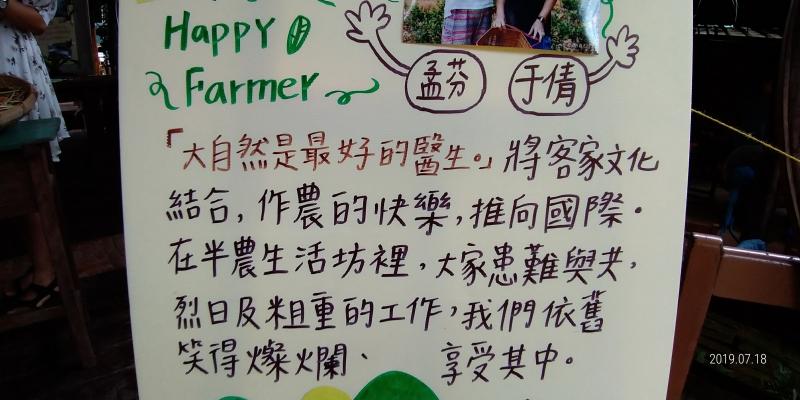 Happy
Farmer
孟芬 于倩
「大自然是最好的醫生。」將客家文化
結合,作農的快樂,推向國際。
在半農生活坊裡,大家患難與共,
烈日及粗重的工作,我們依舊
笑得燦爛、 享受其中。
2019.07.18